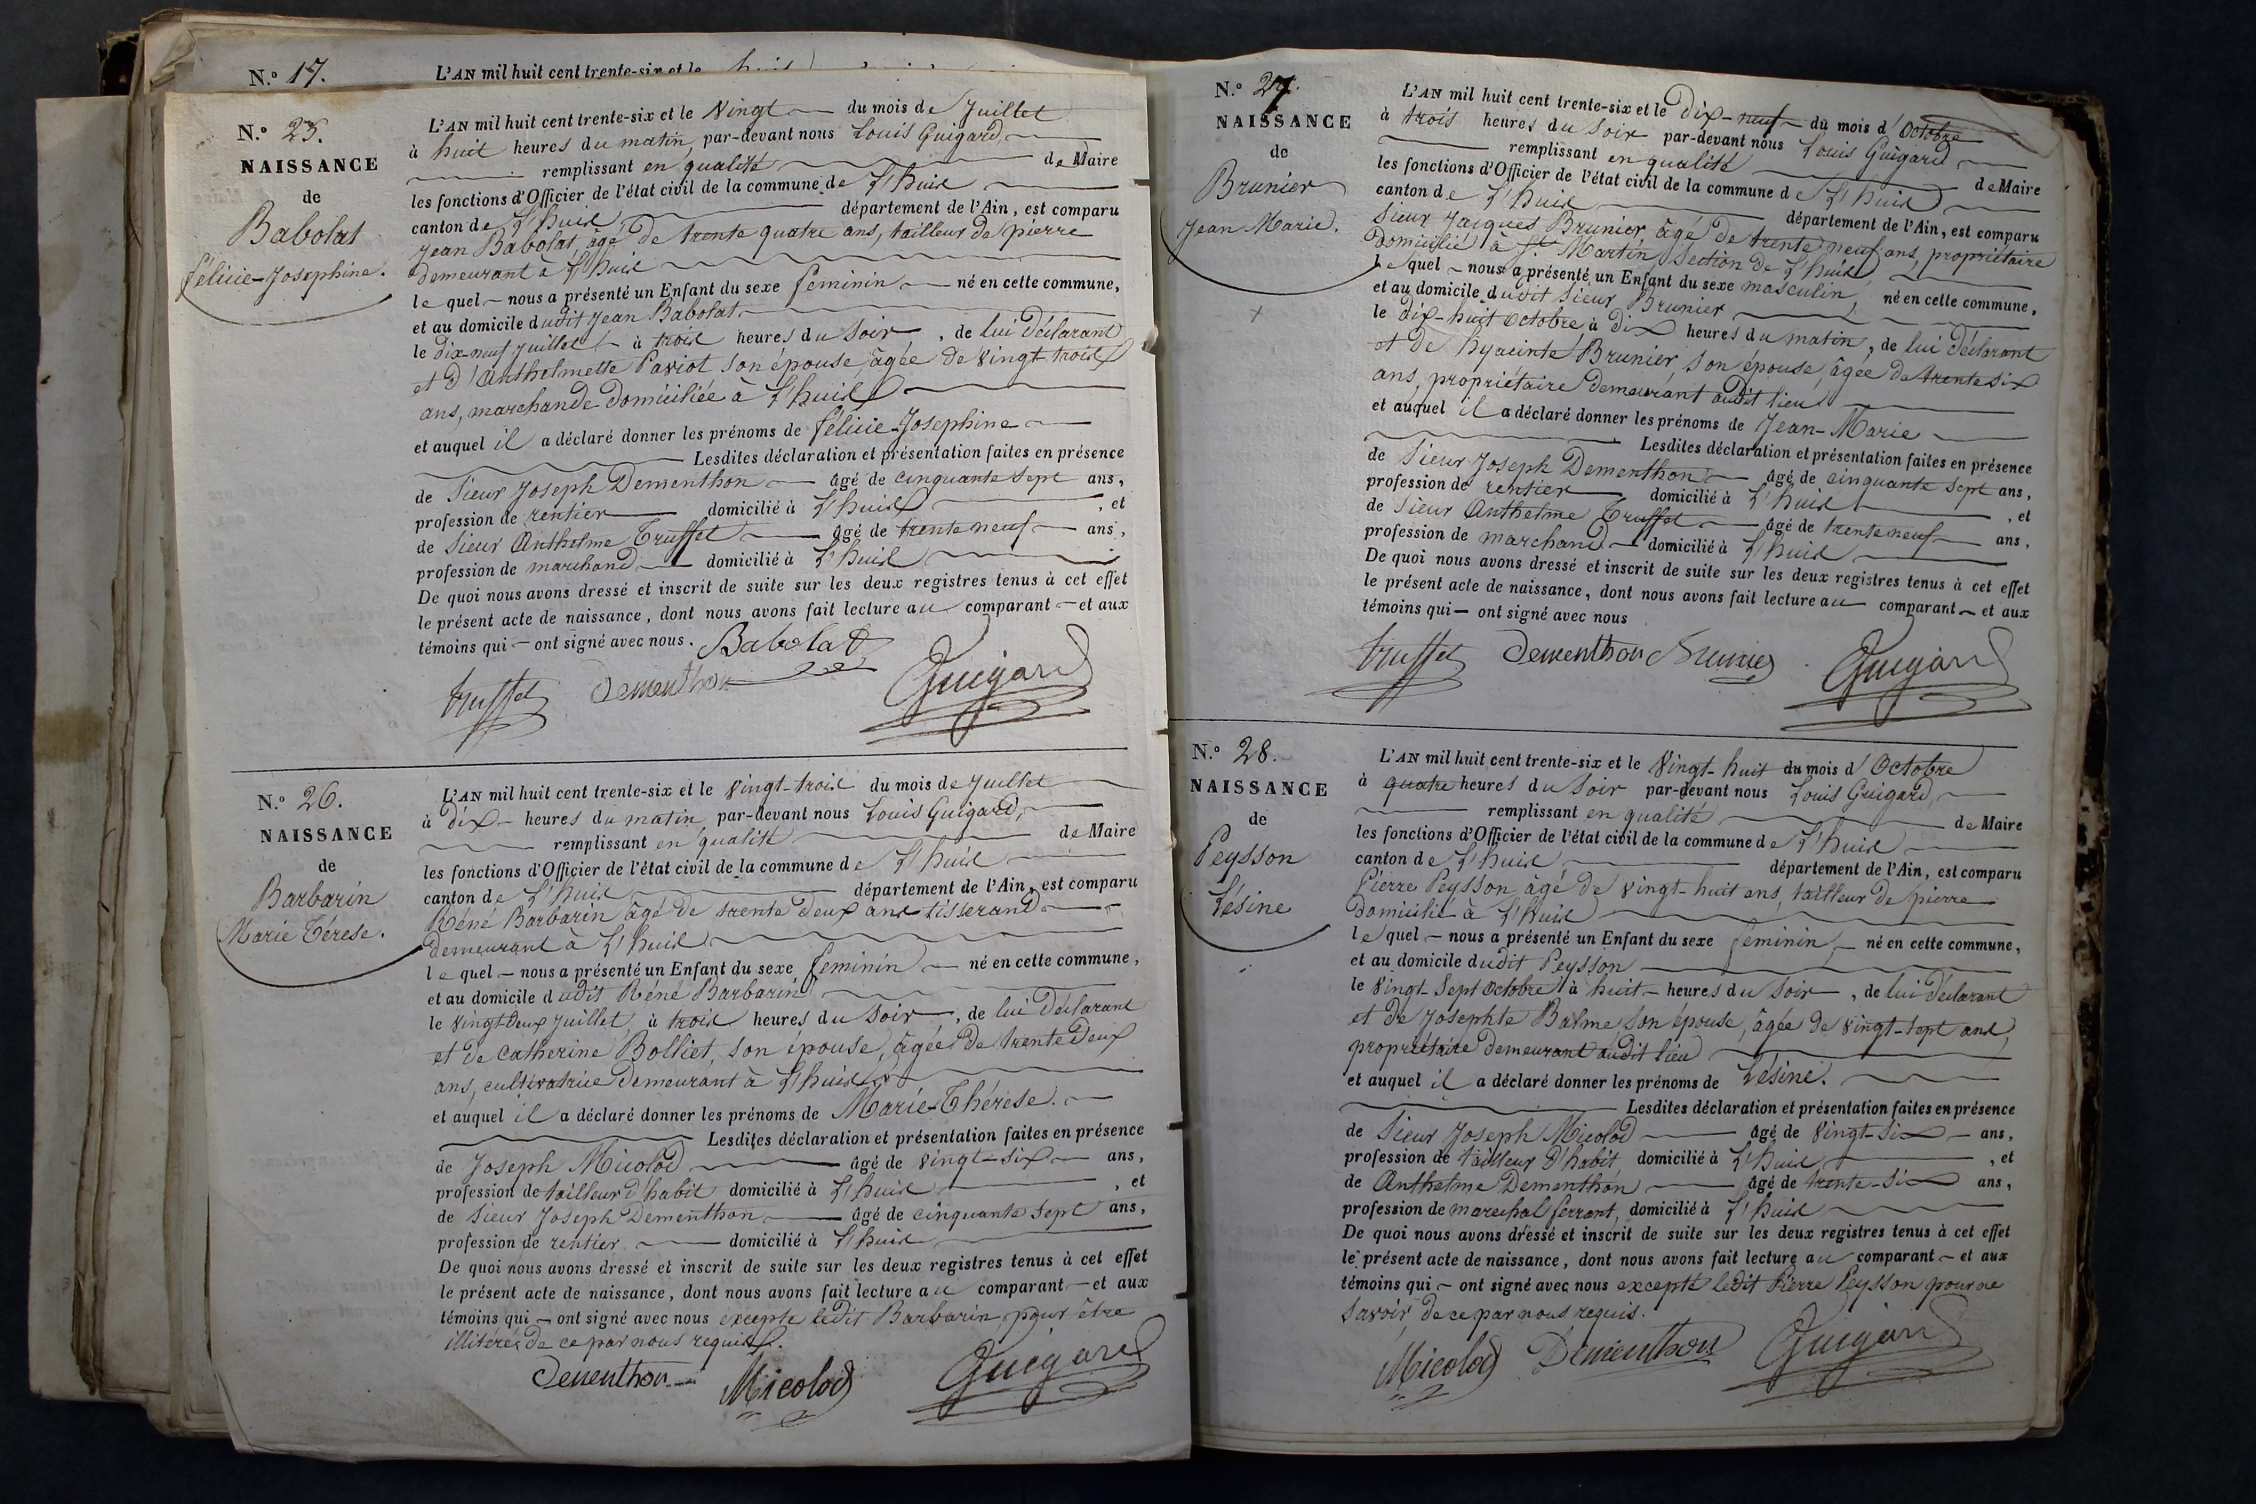 N.º 17.
L'AN mil huit cent trente-six et le
N.º 25.
NAISSANCE
de
Babolat
félicie-Josephine.
L'AN mil huit cent trente-six et le Vingt du mois de Juillet
à huit heures du matin, par-devant nous Louis Guigard,
remplissant en qualité de Maire
les fonctions d'Officier de l'état civil de la commune de L'huis
canton de L'huis département de l'Ain, est comparu
Jean Babolat, âgé de trente quatre ans, tailleur de pierre
demeurant à L'huis
le quel nous a présenté un Enfant du sexe feminin né en cette commune,
et au domicile dudit Jean Babolat
le dix-neuf Juillet à trois heures du Soir, de lui déclarant
et d'Anthelmette Paviot son épouse, âgée de vingt-trois
ans, marchande domiciliée à L'huis
et auquel il a déclaré donner les prénoms de félicie-Josephine
Lesdites déclaration et présentation faites en présence
de Sieur Joseph Dementhon âgé de cinquante sept ans,
profession de rentier domicilié à L'huis, et
de Sieur Anthelme Truffet âgé de trente neuf ans,
profession de marchand domicilié à L'huis
De quoi nous avons dressé et inscrit de suite sur les deux registres tenus à cet effet
le présent acte de naissance, dont nous avons fait lecture au comparant et aux
témoins qui ont signé avec nous. Babolat
truffet Dementhon Guigard
N.º 26.
NAISSANCE
de
Barbarin
Marie Térese.
L'AN mil huit cent trente-six et le vingt-trois du mois de Juillet
à dix heures du matin par-devant nous Louis Guigard,
remplissant en qualité de Maire
les fonctions d'Officier de l'état civil de la commune de L'huis
canton de L'huis département de l'Ain, est comparu
Réné Barbarin âgé de trente deux ans tisserand
demeurant à L'huis
le quel nous a présenté un Enfant du sexe feminin né en cette commune,
et au domicile dudit Réné Barbarin
le vingt deux Juillet, à trois heures du Soir, de lui déclarant
et de Catherine Bolliet, son épouse, âgée de trente deux
ans, cultivatrice demeurant à L'huis
et auquel il a déclaré donner les prénoms de Marie-Thérese.
Lesdites déclaration et présentation faites en présence
de Joseph Micolod âgé de vingt-six ans,
profession de tailleur d'habit domicilié à L'huis, et
de Sieur Joseph Dementhon âgé de cinquante sept ans,
profession de rentier domicilié à L'huis
De quoi nous avons dressé et inscrit de suite sur les deux registres tenus à cet effet
le présent acte de naissance, dont nous avons fait lecture au comparant et aux
témoins qui ont signé avec nous excepte ledit Barbarin, pour être
illitéré de ce par nous requis.
Dementhon Micolod Guigard
N.º 27.
NAISSANCE
de
Brunier
Jean Marie.
L'AN mil huit cent trente-six et le dix-neuf du mois d'Octobre
à trois heures du Soir par-devant nous Louis Guigard
remplissant en qualité de Maire
les fonctions d'Officier de l'état civil de la commune de L'huis
canton de L'huis département de l'Ain, est comparu
Sieur Jacques Brunier, âgé de trente neuf ans, propriétaire
domicilié à St. Martin Section de L'huis
le quel nous a présenté un Enfant du sexe masculin, né en cette commune,
et au domicile dudit Sieur Brunier
le dix-huit Octobre à dix heures du matin, de lui déclarant
et de hyacinte Brunier, son épouse, âgée de trente six
ans, propriétaire demeurant audit lieu
et auquel il a déclaré donner les prénoms de Jean-Marie
Lesdites déclaration et présentation faites en présence
de Sieur Joseph Dementhon âgé de cinquante sept ans,
profession de rentier domicilié à L'huis, et
de Sieur Anthelme Truffet âgé de trente neuf ans,
profession de marchand domicilié à L'huis
De quoi nous avons dressé et inscrit de suite sur les deux registres tenus à cet effet
le présent acte de naissance, dont nous avons fait lecture au comparant et aux
témoins qui ont signé avec nous
truffet Dementhon Brunier Guigard
N.º 28.
NAISSANCE
de
Peysson
Lésine
L'AN mil huit cent trente-six et le vingt-huit du mois d'Octobre
à quatre heures du Soir par-devant nous Louis Guigard,
remplissant en qualité de Maire
les fonctions d'Officier de l'état civil de la commune de L'huis
canton de L'huis département de l'Ain, est comparu
Pierre Peysson, âgé de vingt-huit ans, tailleur de pierre
domicilié à L'huis
le quel nous a présenté un Enfant du sexe feminin, né en cette commune,
et au domicile dudit Peysson
le vingt-Sept Octobre à huit heures du Soir, de lui déclarant
et de Josephte Balme son épouse, âgée de vingt-sept ans,
propriétaire demeurant audit lieu
et auquel il a déclaré donner les prénoms de Lésine.
Lesdites déclaration et présentation faites en présence
de Sieur Joseph Micolod âgé de vingt-six ans,
profession de tailleur d'habit, domicilié à L'huis, et
de Anthelme Dementhon âgé de trente-six ans,
profession de marechal ferrant, domicilié à L'huis
De quoi nous avons dressé et inscrit de suite sur les deux registres tenus à cet effet
le présent acte de naissance, dont nous avons fait lecture au comparant et aux
témoins qui ont signé avec nous excepté ledit Pierre Peysson pour ne
savoir de ce par nous requis.
Micolod Dementhon Guigard